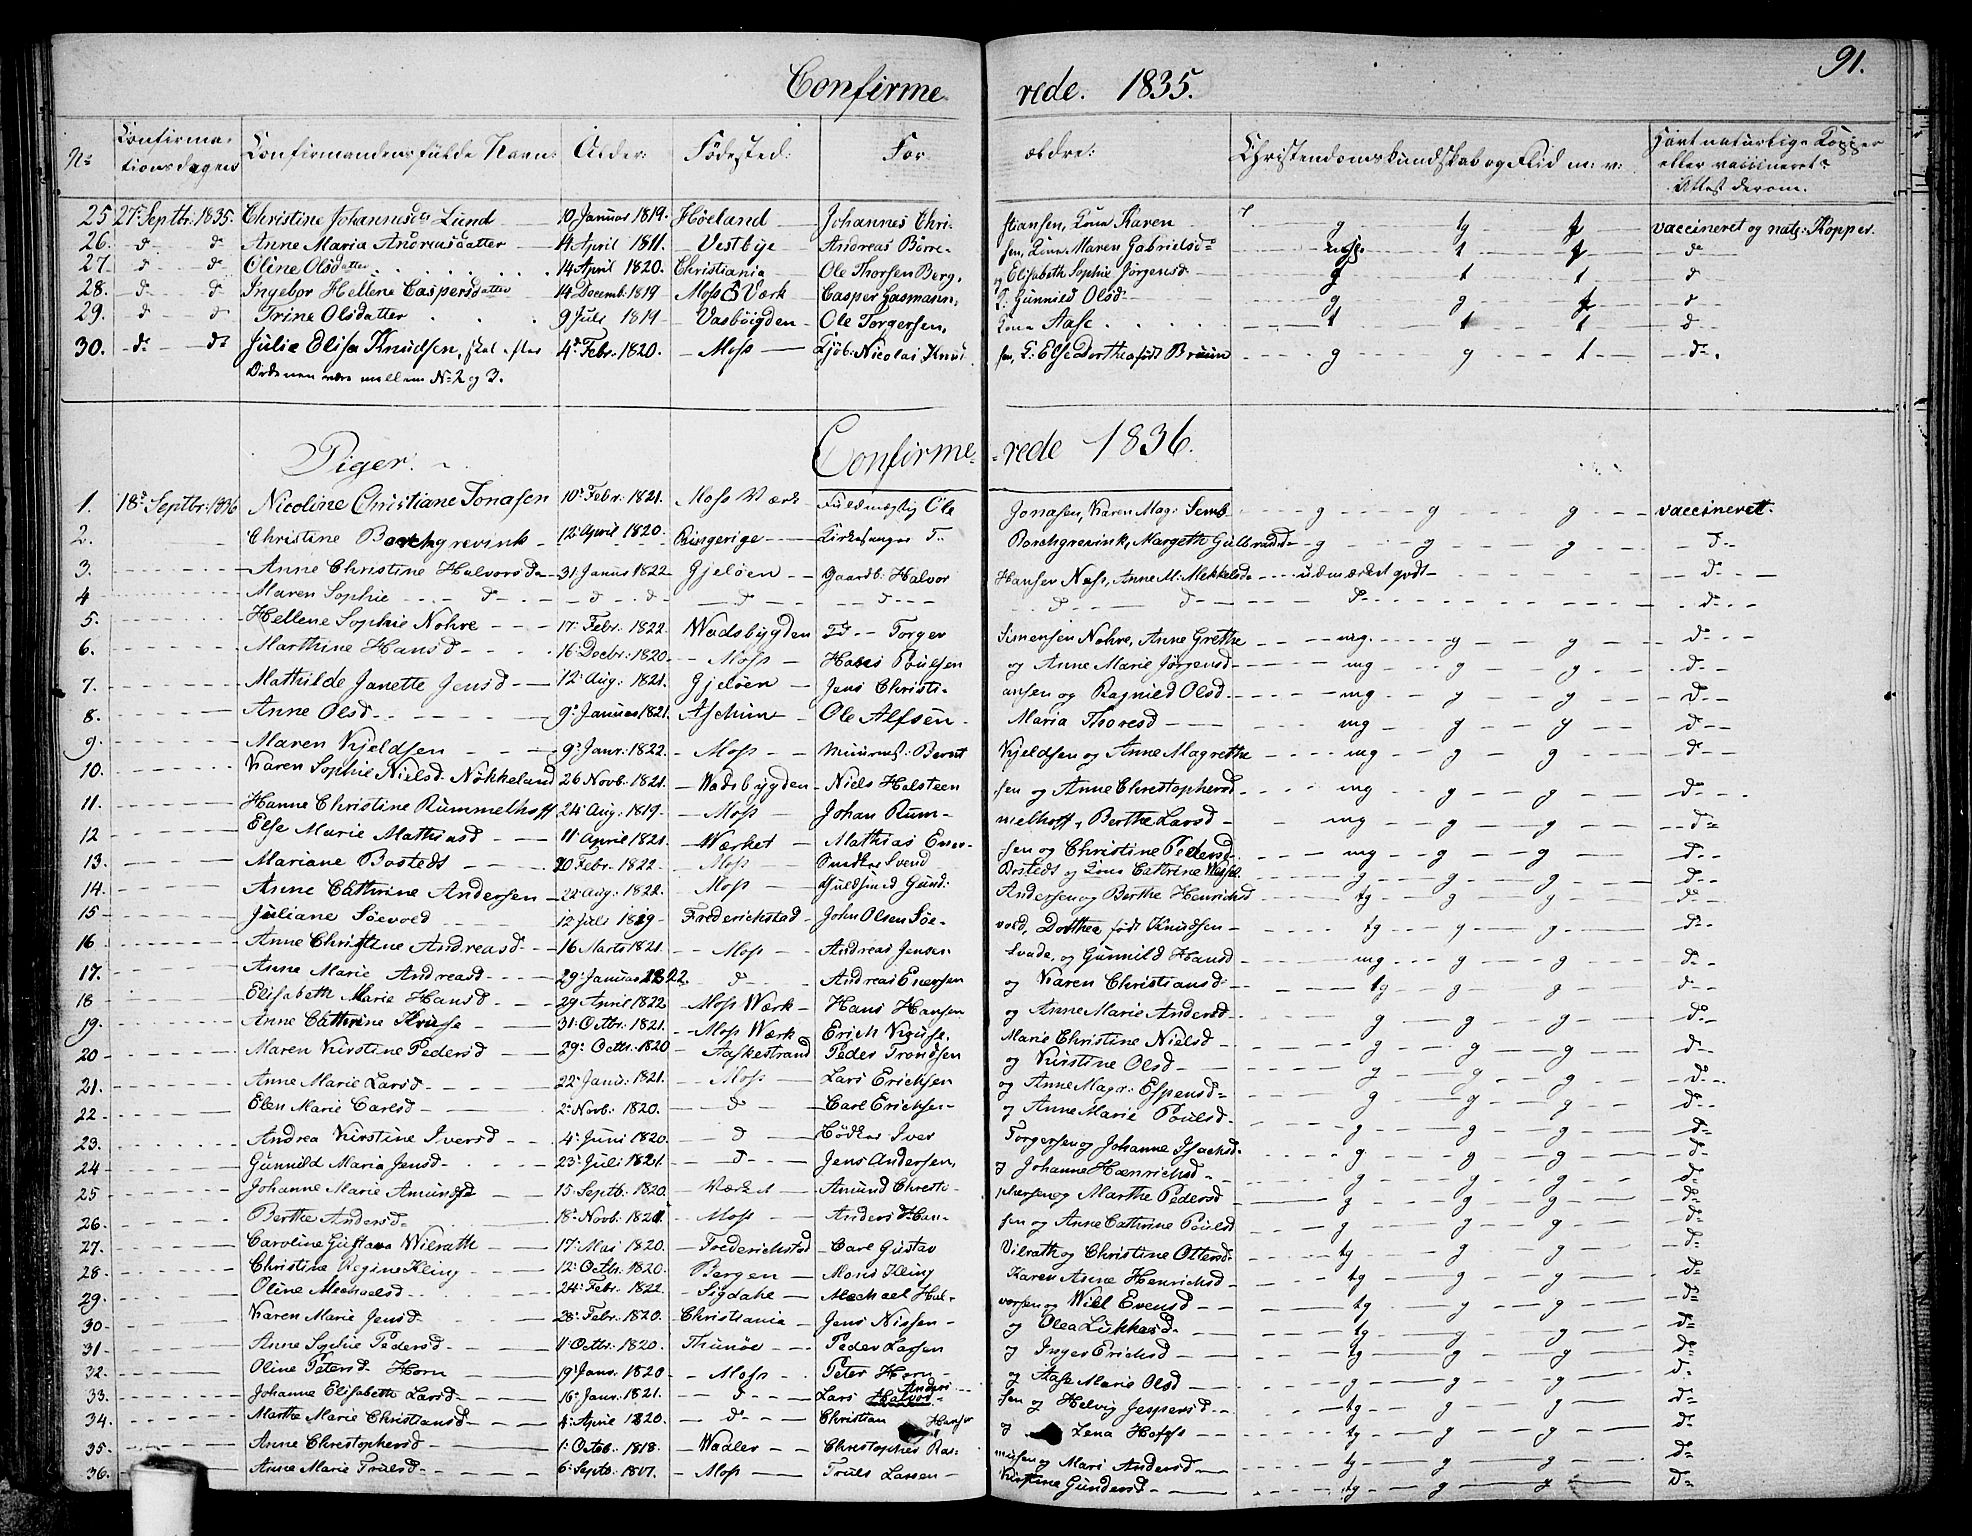 91.
Confirme rede. 1835.
No Confirma- Confirmandens fulde Navn: Alder: Fødested: For ældre: Christendoms kundskab og Flid m: v: Havt naturlige Kopper
tionsdagen eller vaccineret?
Attest derom.
25 27 Septbr: 1835. Christine Johannesdtr Lund 10 Januar 1819. Høeland Johannes Chri- stiansen, Kone Karen g tg vaccineret og natl: Kopper.
26. d d Anne Maria Andreasdatter 14 April 1811. Vestbye Andreas Børre- sen, Kone Maren Gabrielsd t d
27. d d Oline Olsdatter 14 April 1820. Christiania Ole Thorsen Berg, og Elisabeth Sophie Jørgensd g t t d
28. d d Ingebor Hellene Caspersdatter 14 Decemb: 1819 Moss Værk Casper Gasmann, K: Gunnild Olsd g g d
29. d d Trine Olsdatter 9 Juli 1819 Vasbøigden Ole Torgersen, Kone Aase t t t d
30. d d Julie Elise Knudsen, skal efter 4 Febr: 1820. Moss Kjøb: Nicolai Knud sen, K: Else Dorthea født Bruun g g t d
Ordenen være mellem No 2 og 3.
Piger. Confirme- rede 1836.
1. 18 Septbr: 1836 Nicoline Christiane Jonasen 10 Febr: 1821. Moss Værk Fuldmægtig Ole Jonasen, Karen Mag: Semb g g g vaccineret.
2. Christine Borchgrevink 12 April 1820. Ringerige Kirkesanger T. Borchgrevink, Margeth Gulbrandsd g g g d
3. Anne Christine Halvorsd 31 Janus 1822 Gjeløen Gaardb: Halvor Hansen Næss, Anne M: Mekkelsd udmærket godt d
4 Maren Sophie d d d d d d d d d
5. Hellene Sophie Nohre 17 Febr: 1822. Wadsbygden Torger Simensen Nohre, Anne Grethe mg. g g d
6. Marthine Hansd 16 Decbr: 1820. Moss Hans Poulsen og Anne Marie Jørgensd mg g g d
7. Mathilde Janette Jensd 12 Aug: 1821. Gjeløen Jens Christi- ansen og Ragnild Olsd mg g g d
8. Anne Olsd 9 Januar 1821. Aschim Ole Alfsen Maria Thoresd mg g g d
9. Maren Kjeldsen 9 Janr: 1822. Moss Muurmst: Bernt Kjeldsen og Anne Magrethe mg g g d
10. Karen Sophie Nielsd. Nøkkeland 26 Novb: 1821. Wadsbygden Niels Halsteen sen og Anne Christophersd mg g g d
11. Hanne Christine Rummelhoff 24 Aug: 1819. Moss Johan Rum- melhoff, Berthe Larsd mg g g d
12 Else Marie Mathiasd 11 April 1821. Værket Mathias Ener- sen og Christine Pedersd mg g g d
13. Mariane Bostedt 20 Febr: 1822. Moss Snedker Svend Bostedt og Kone Cathrine g g g d
14. Anne Cathrine Andersen 22 Aug: 1822. Moss Guldsmed Gund: Andersen og Berthe Henrichsd tg g g d
15 Juliane Søevold 12 Juli 1819 Frederichstad John Olsen Søe- vold, Dorthea født Knudsen tg g g d
16 Anne Christine Andreasd 16 Marts 1821. Moss Andreas Jensen Svade, og Gunnild Hansd mg g g d
17. Anne Marie Andreasd 29 Januar 1822. d Andreas Enersen og Karen Christiansd tg g g d
18 Elisabeth Marie Hansd 29 April 1822 Moss Værk Hans Hansen og Anne Marie Andersd g g g d
19. Anne Cathrine Kruse 31 Octbr: 1821. Moss Værk Erich Kruse. Marie Christine Nielsd g g g d
20 Maren Kirstine Pedersd 29 Octbr: 1820 Aaskestrand Peder Trondsen og Kirstine Olsd g g g d
21. Anne Marie Larsd 22 Janr: 1821. Moss Lars Erichsen og Anne Magr: Espensd g g g d
22 Elen Marie Carlsd 2 Novb: 1820. d Carl Erichsen og Anne Marie Poulsd g g g d
23. Andrea Kirstine Iversd 4 Juni 1820. d Bødker Iver Torgersen og Johanne Isachsd g g g d
24 Gunnild Maria Jensd 23 Juli 1821. d Jens Andersen, og Johanne Henrichsd g g g d
25 Johanne Marie Amundsd 15 Septb: 1820. Værket Amund Christo- phersen og Marthe Pedersd g g g d
26. Berthe Andersd 18 Novb: 1821 Moss Anders Han- sen og Anne Cathrine Poulsd g g g d
27. Caroline Gustava Wilrath 17 Mai 1820. Frederichstad Carl Gustav Vilrath og Christine Ottersd tg g g d
28. Christine Regine Kling 12 Octbr: 1820. Bergen Mons Kling Karen Anne Henrichsd tg g g d
29. Oline Mechaelsd 24 Febr: 1822. Sigdahl Mechael Hal- vorsen og Wiel Evensd tg g g d
30 Karen Marie Jensd 28 Febr: 1820. Christiania Jens Nissen og Olea Lukkasd tg g g d
31 Anne Sophie Pedersd 11 Octbr: 1820. Thunøe Peder Larsen og Inger Erichsd tg g g d
32. Oline Petersd Horn 19 Janr: 1820 Moss Peter Horn og Aase Marie Olsd g g g d
33. Johanne Elisabeth Larsd 16 Janr: 1821. d Lars Halvor Anders sen og Helvig Jespersd tg g g d
34. Marthe Marie Christiansd 4 April 1820. d Christian Hansen og Lena Hoffs tg g g d
35. Anne Christophersd 1 Octob: 1818. Waaler Christopher Ras- musen og Mari Andersd tg g g d
36. Anne Marie Trulsd 6 Septb: 1807. Moss Truls Larsen Kirstine Gundersd tg g g d